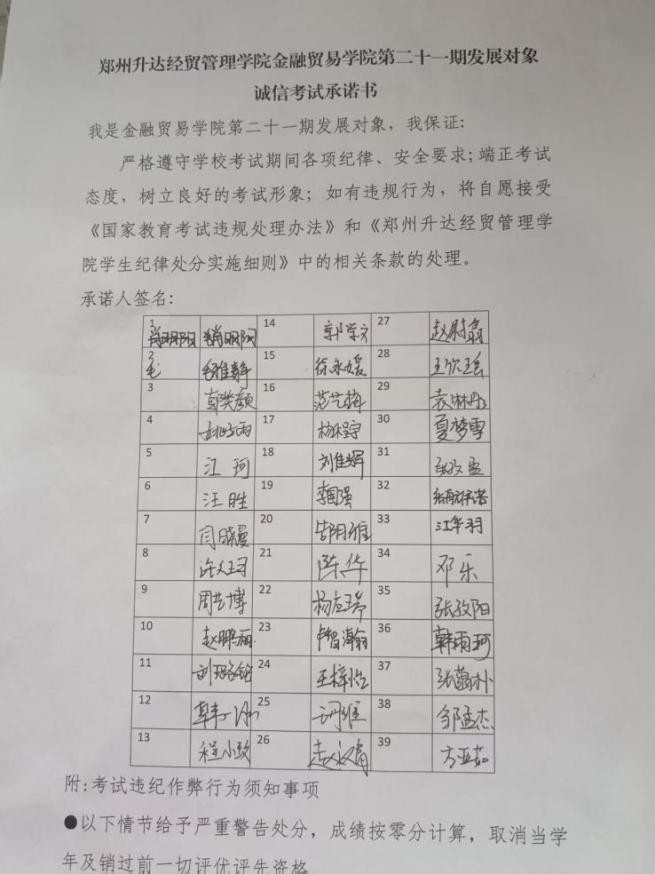 郑州升达经贸管理学院金融贸易学院第二十一期发展对象
诚信考试承诺书
我是金融贸易学院第二十一期发展对象，我保证：
严格遵守学校考试期间各项纪律、安全要求；端正考试
态度，树立良好的考试形象；如有违规行为，将自愿接受
《国家教育考试违规处理办法》和《郑州升达经贸管理学
院学生纪律处分实施细则》中的相关条款的处理。
承诺人签名：
1 肖明阳 肖明阳 14 27 赵尉翕
2 毛 毛雅静 15 徐永媛 28 王欣瑶
3 16 范艺梅 29 袁琳彤
4 17 杨程宇 30 夏梦雪
5 江珂 18 刘佳辉 31
6 汪胜 19 李国强 32
7 闫晓曼 20 33 江华羽
8 21 陈华 34 邓乐
9 周艺博 22 杨应瑞 35 张孜阳
10 赵鹏丽 23 卢智瀚 36 韩雨珂
11 24 王梓怡 37 张蕴朴
12 25 38 邹孟杰
13 程小政 26 39 方亚茹
附：考试违纪作弊行为须知事项
●以下情节给予严重警告处分，成绩按零分计算，取消当学
年及销过前一切评优评先资格